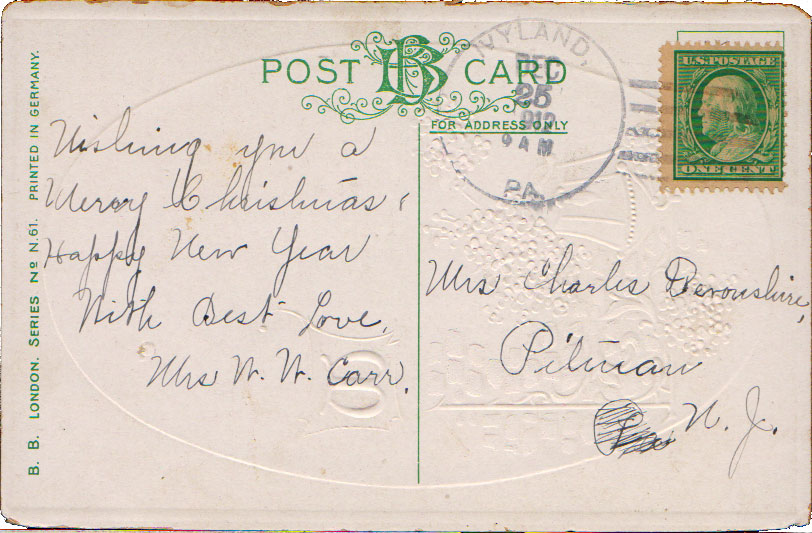 POST CARD
BB
FOR ADDRESS ONLY
WYLAND,
DEC
25
AM
PA.
U.S. POSTAGE
ONE CENT
B. B. LONDON. SERIES No N.61. PRINTED IN GERMANY.
Wishing you a
Merry Christmas &
Happy New Year
With Best Love,
Mrs W. W. Carr.
Mrs Charles Devonshire,
Pitman
N. J.